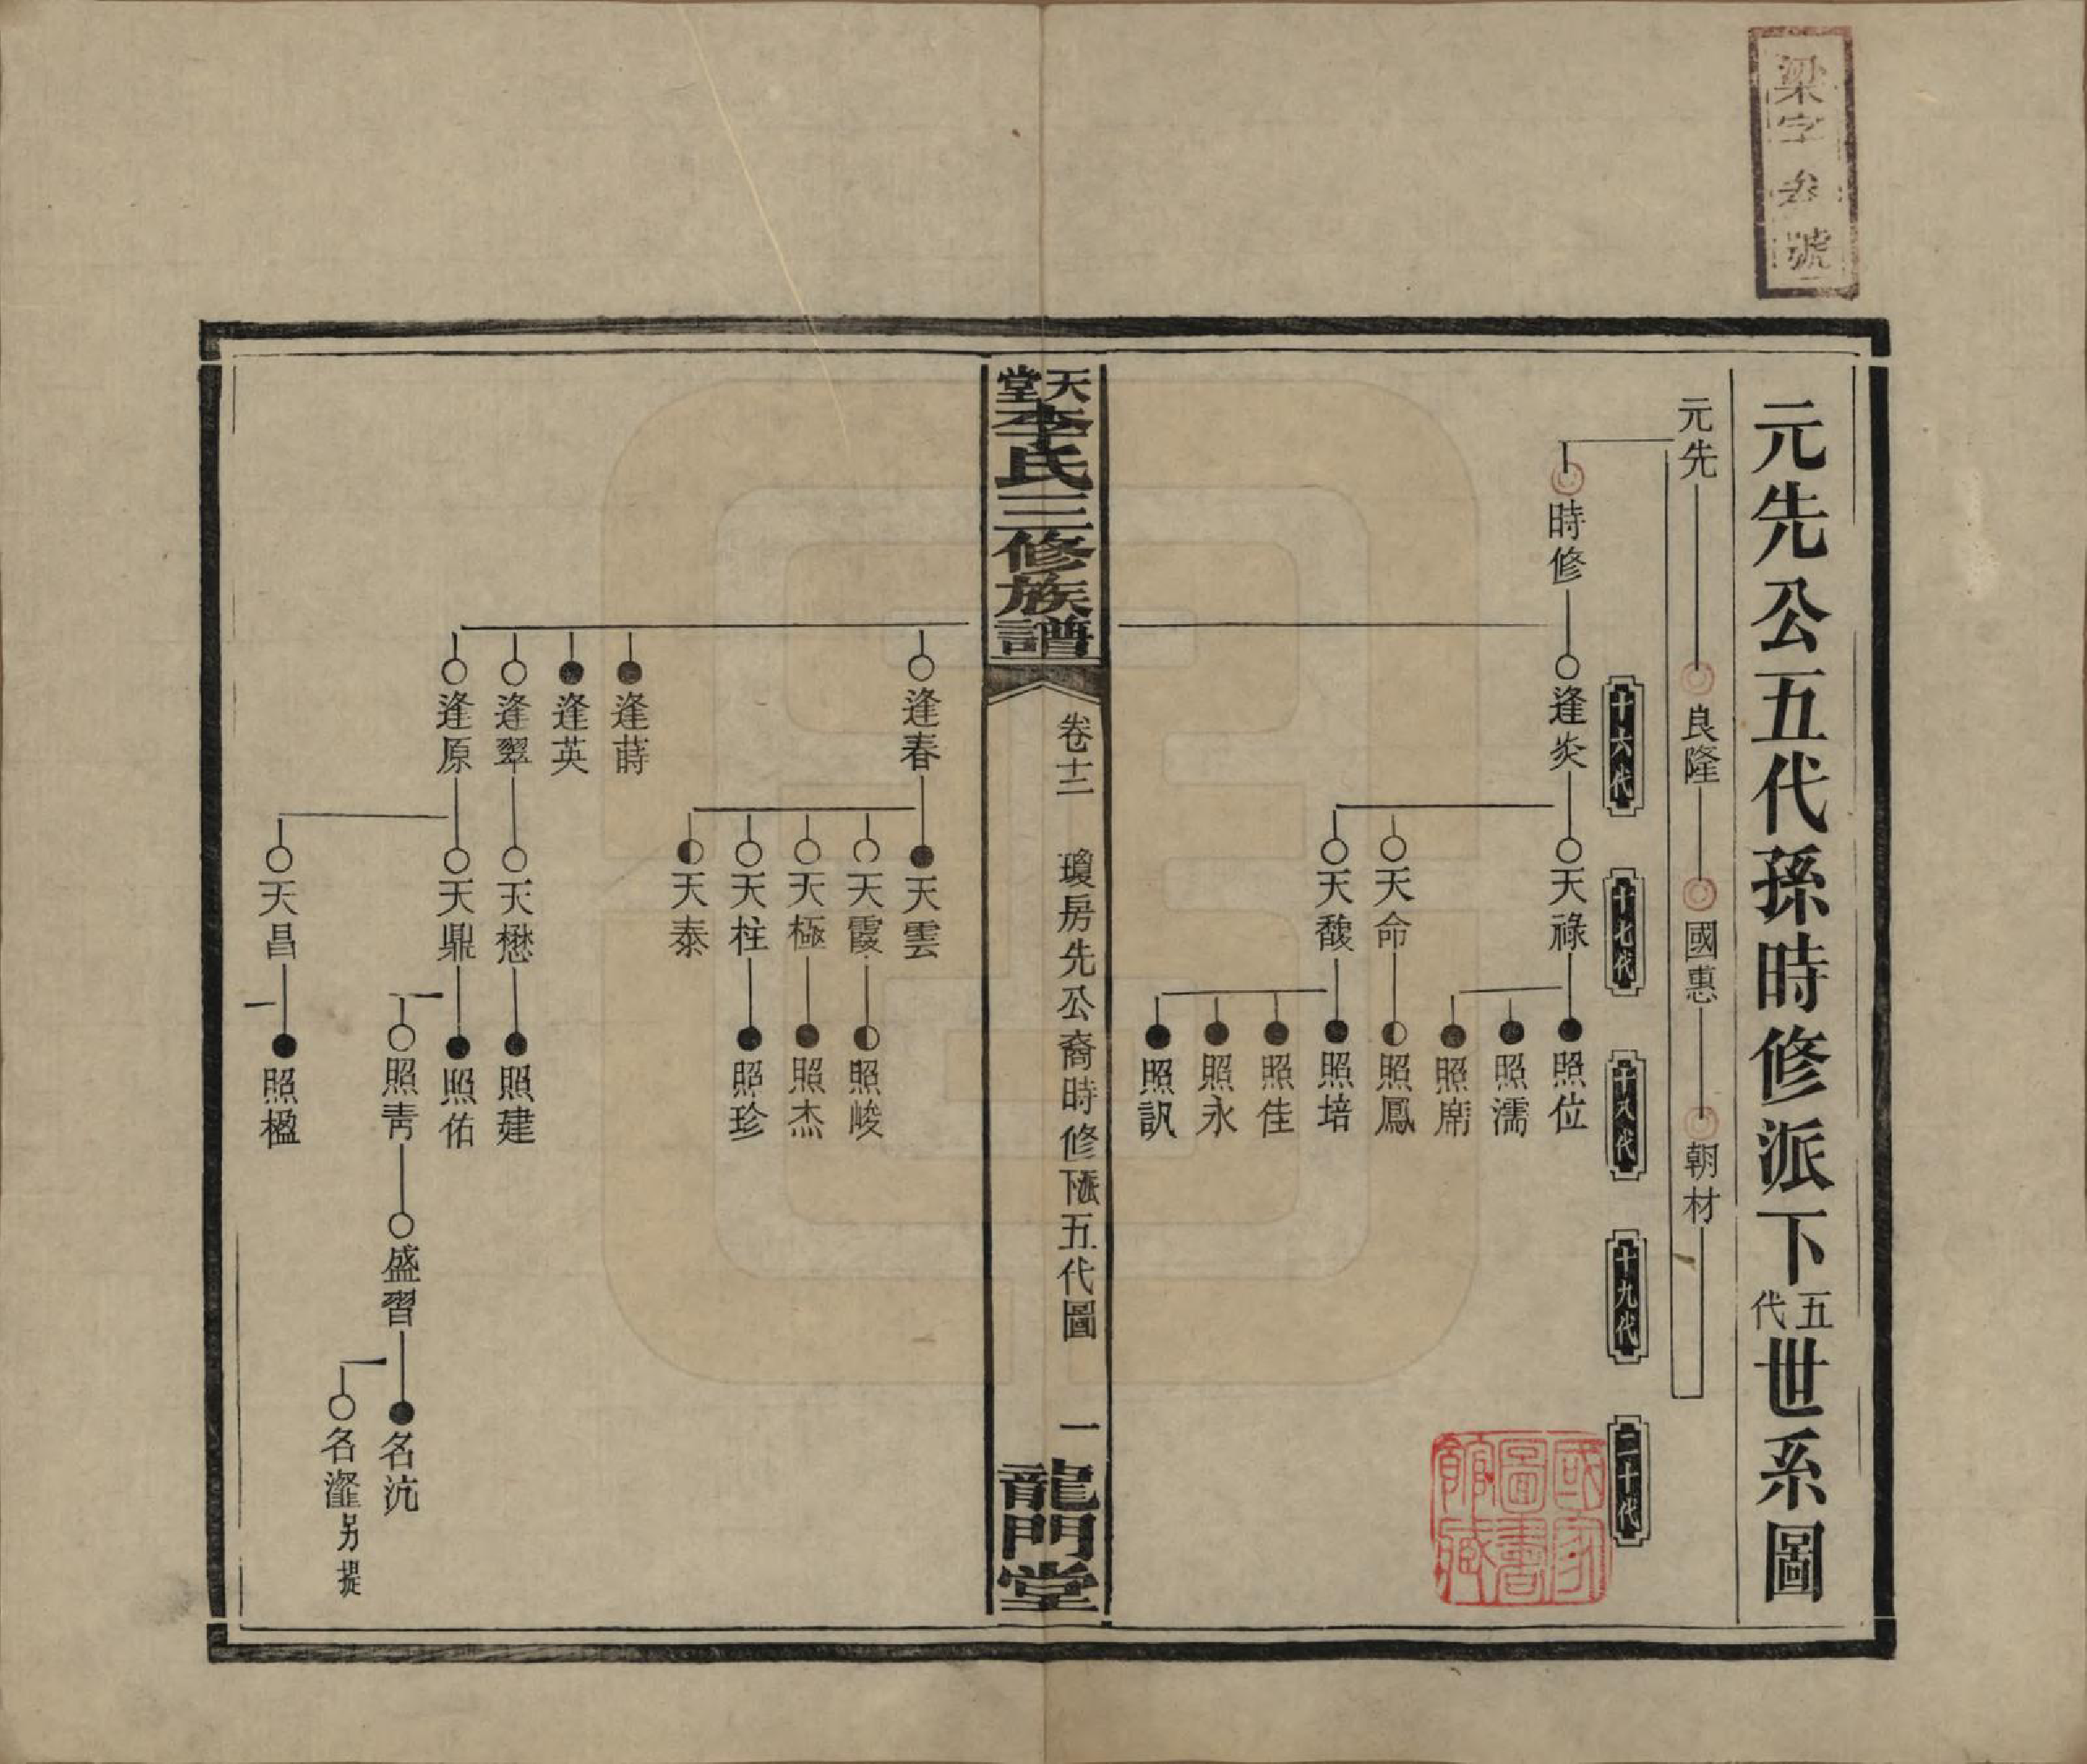 梁字叁號
元先公五代孫時修派下五代世系圖
元先
良隆
國惠
朝材
十六代
十七代
十八代
十九代
二十代
時修
逢炎
天祿
照位
照濡
照席
天命
照鳳
天馥
照培
照佳
照永
照訊
國家圖書館藏
天堂李氏三修族譜
卷十二
瓊房先公裔時修派下五代圖
一
龍門堂
逢春
天雲
天霞
照峻
天極
照杰
天柱
照珍
天泰
逢蒔
逢英
逢翠
天懋
照建
逢原
天鼎
照佑
照靑
盛習
名沆
名瀣另提
天昌
照楹